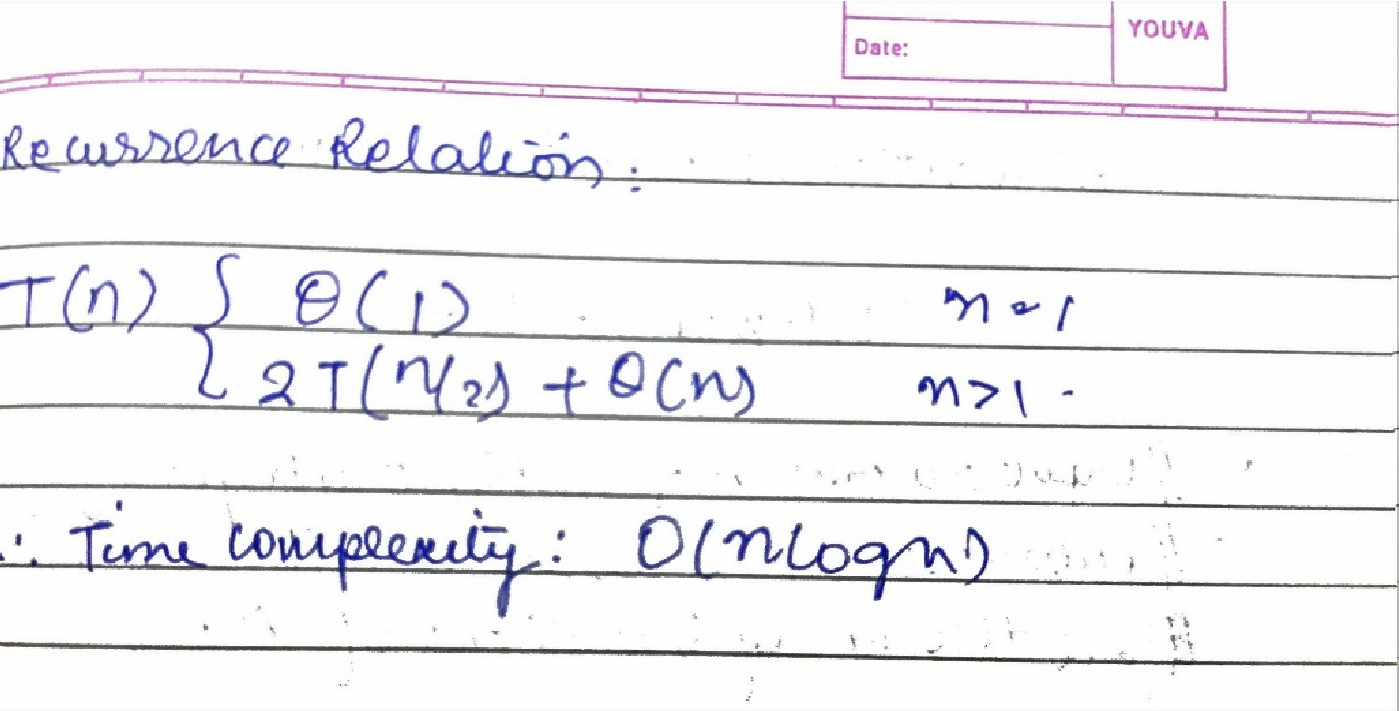 YOUVA
Date:
Recurrence Relation:
T(n) { θ(1) n=1
2T(n/2) + θ(n) n>1.
∴ Time complexity: O(nlogn)